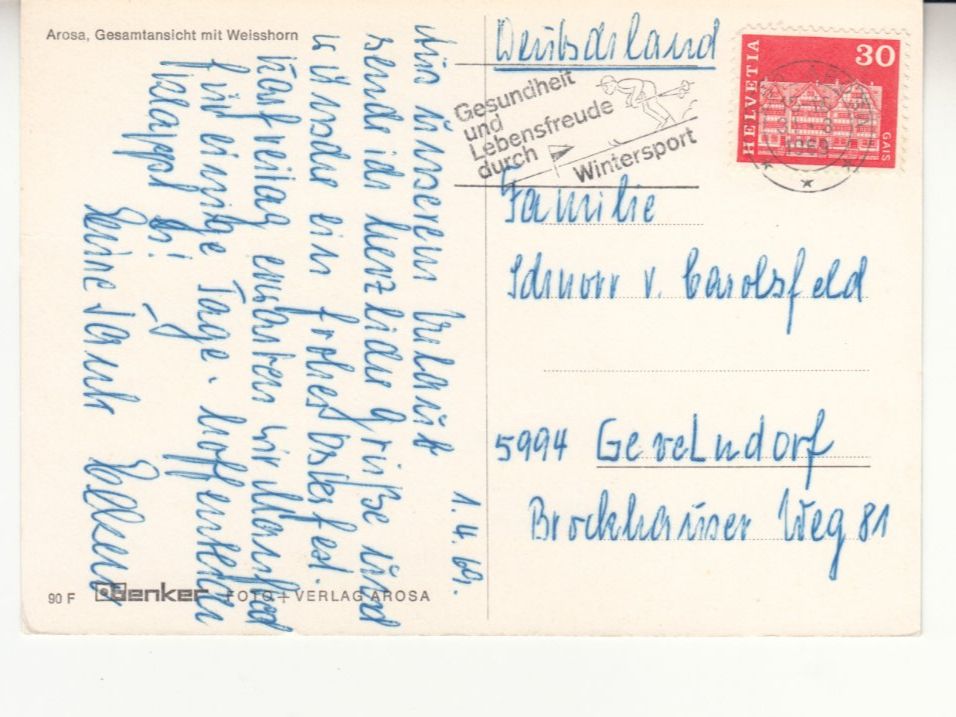 Arosa, Gesamtansicht mit Weisshorn
1. 4. 69.
Aus unserem Urlaub
sende ich herzliche Grüße und
wünsche ein frohes Osterfest.
Karfreitag erwarten wir Manfred
für einige Tage. Hoffentlich
klappt es!
Deine Tante
90 F
Genker FOTO + VERLAG AROSA
Deutschland
Gesundheit
und
Lebensfreude
durch
Wintersport
HELVETIA
30
GAIS
Familie
Schnorr v. Carolsfeld
5994 Gevelndorf
Brockhauser Weg 81